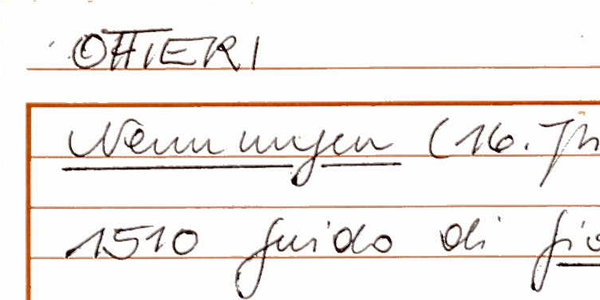 OTTIERI
Nennungen (16. Jh
1510 Guido di Gio